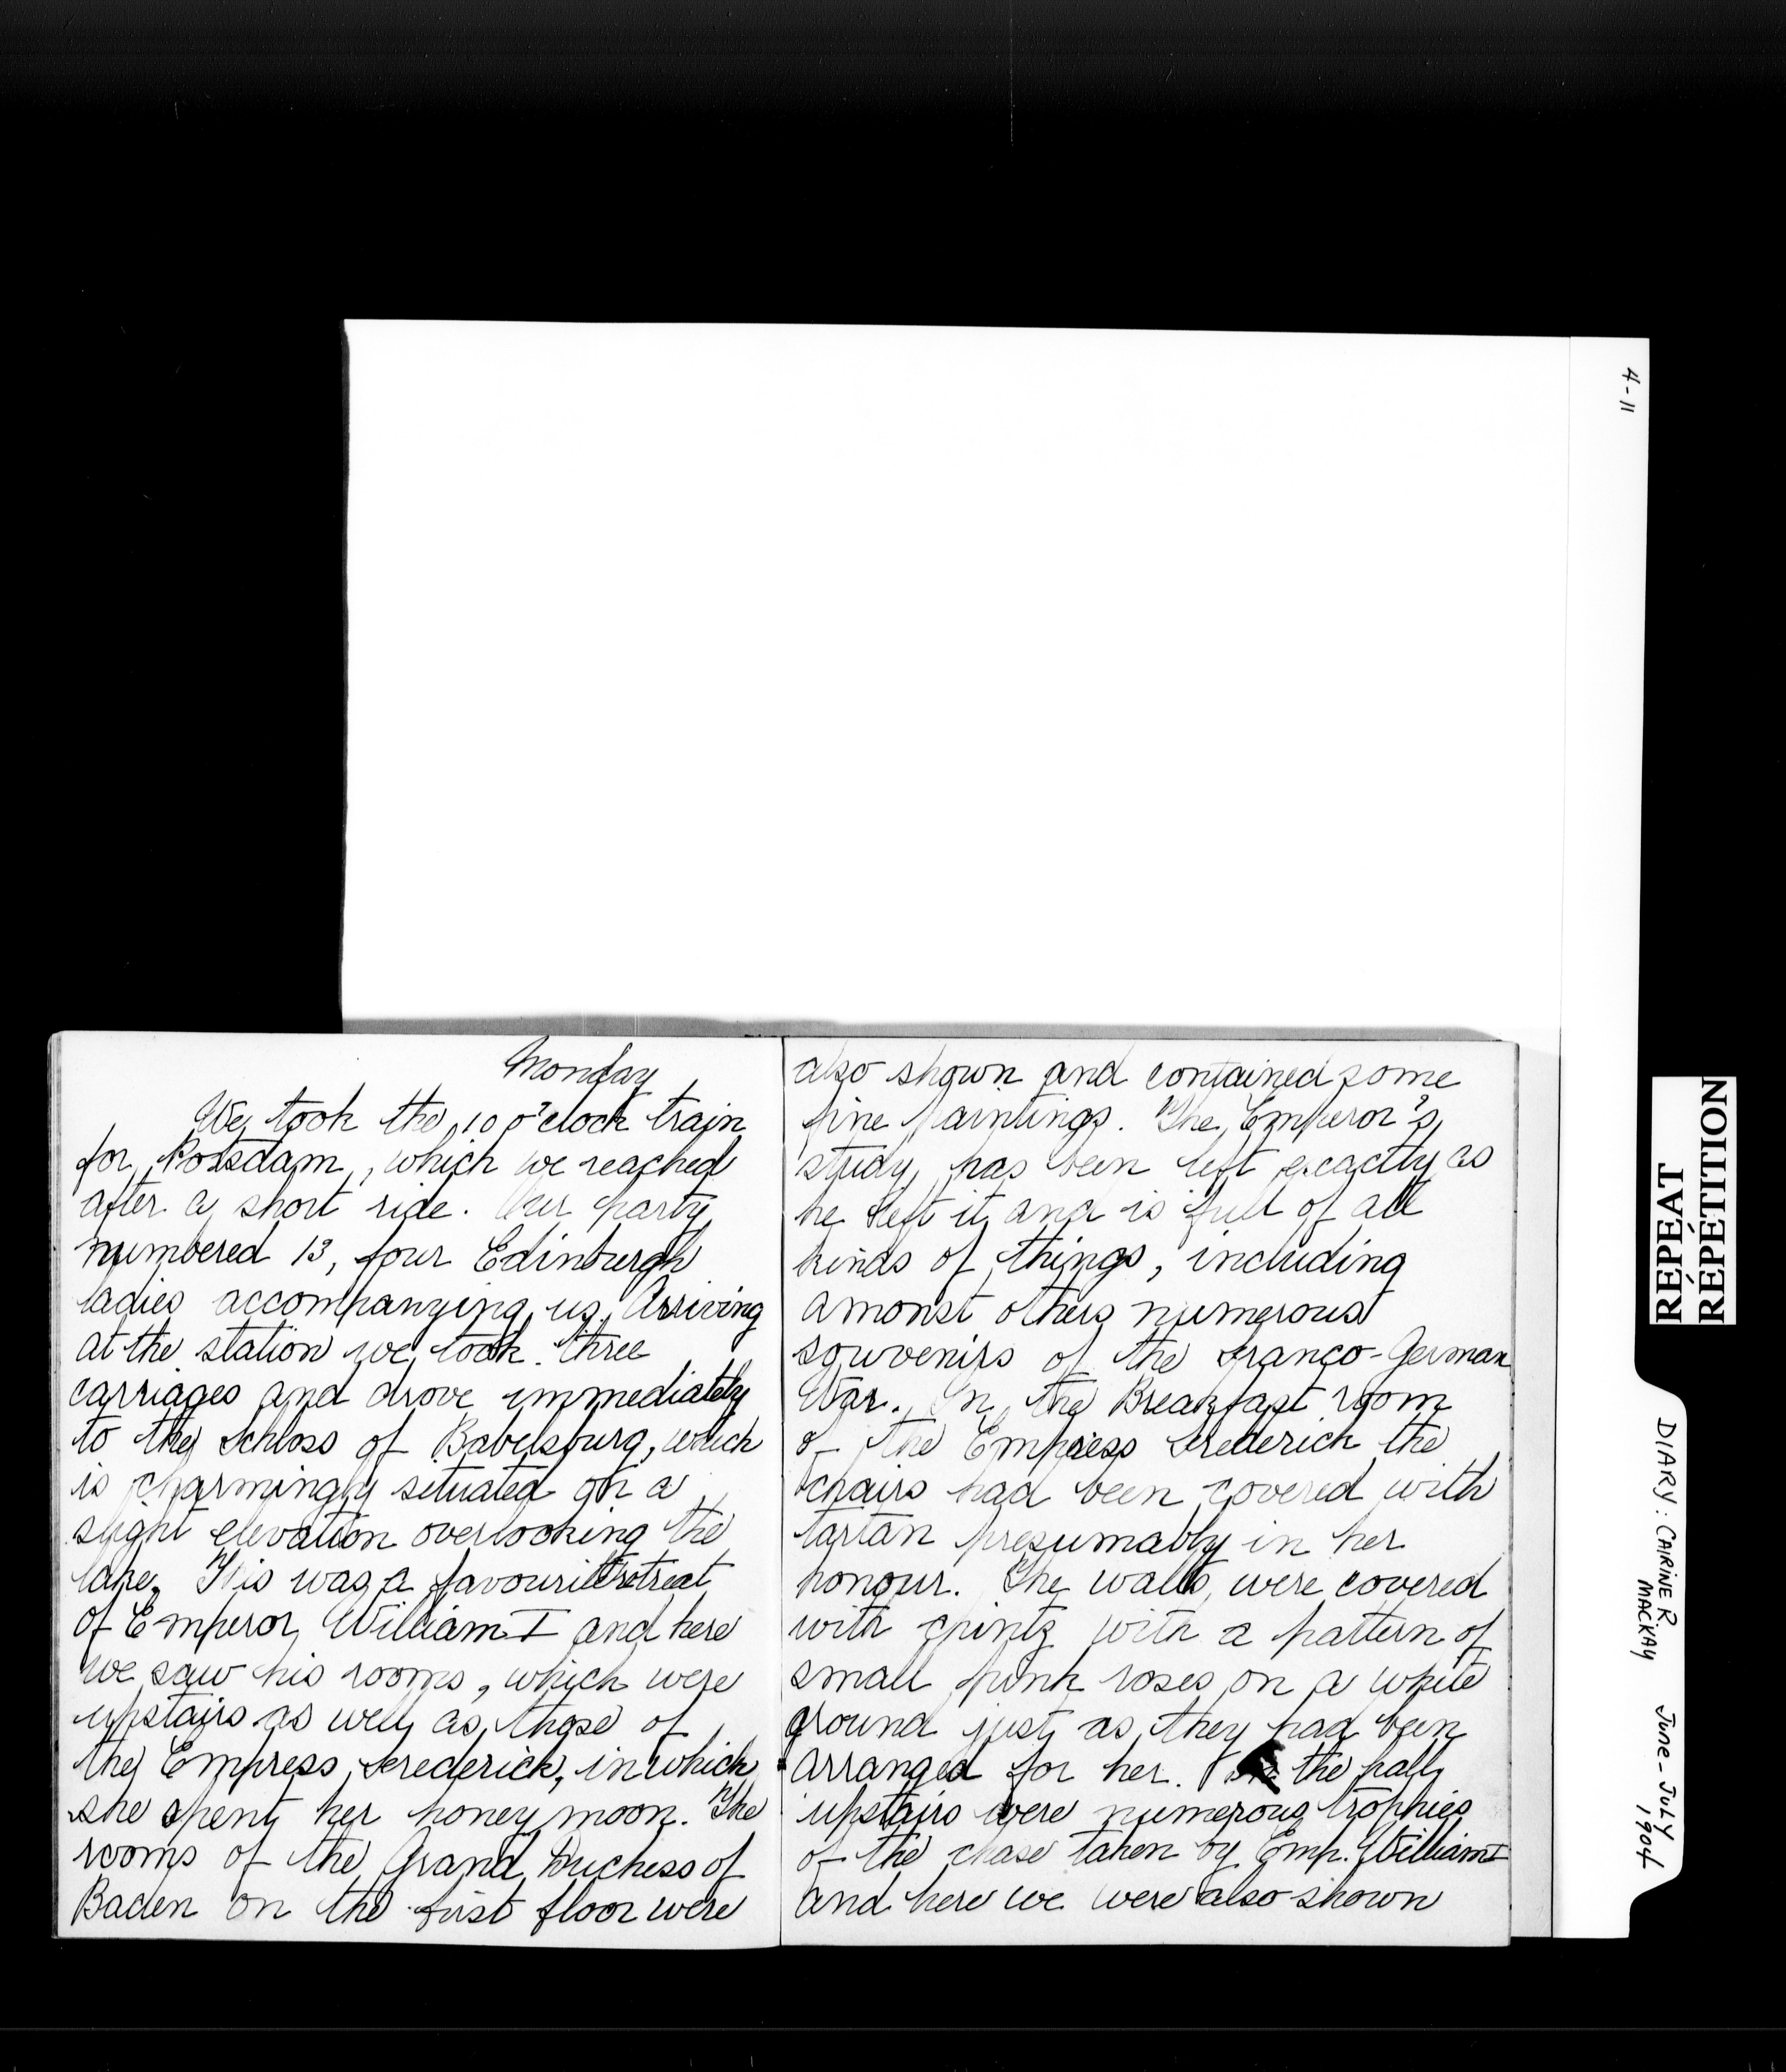 Monday
We took the 10 o'clock train
for Potsdam, which we reached
after a short ride. Our party
numbered 13, four Edinburgh
ladies accompanying us. Arriving
at the station we took three
carriages and drove immediately
to the Schloss of Babelsburg, which
is charmingly situated on a
slight elevation overlooking the
lake. This was a favourite retreat
of Emperor William I and here
we saw his rooms, which were
upstairs as well as those of
the Empress Frederick, in which
she spent her honeymoon. The
rooms of the Grand Duchess of
Baden on the first floor were
also shown and contained some
fine paintings. The Emperor's
study has been left exactly as
he left it and is full of all
kinds of things, including
amonst others numerous
souvenirs of the Franco-German
War. In the Breakfast room
of the Empress Frederick the
chairs had been covered with
tartan presumably in her
honour. The walls were covered
with chintz with a pattern of
small pink roses on a white
ground just as they had been
arranged for her. In the hall
upstairs were numerous trophies
of the chase taken by Emp. William I
and here we were also shown
4-11
REPEAT
RÉPÉTITION
DIARY: CAIRINE R. MACKAY
June - July 1904